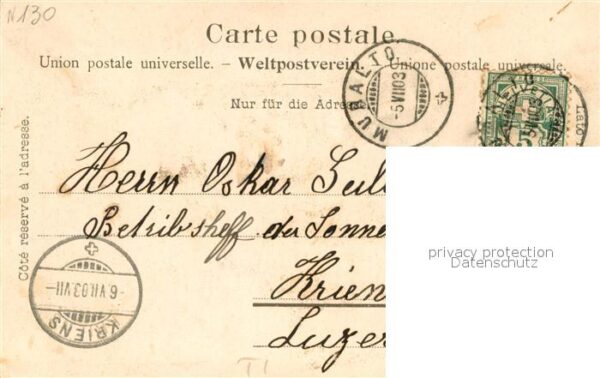 N130
Carte postale.
Union postale universelle. – Weltpostverein. – Unione postale universale.
Nur für die Adres
Côté réservé à l'adresse.
Lato
MURALTO
-5 VII 03
HELVETIA
Herrn Oskar
Betribsheff der Sonne
Krien
Luzer
KRIENS
-6.VII.03.VII-
privacy protection
Datenschutz